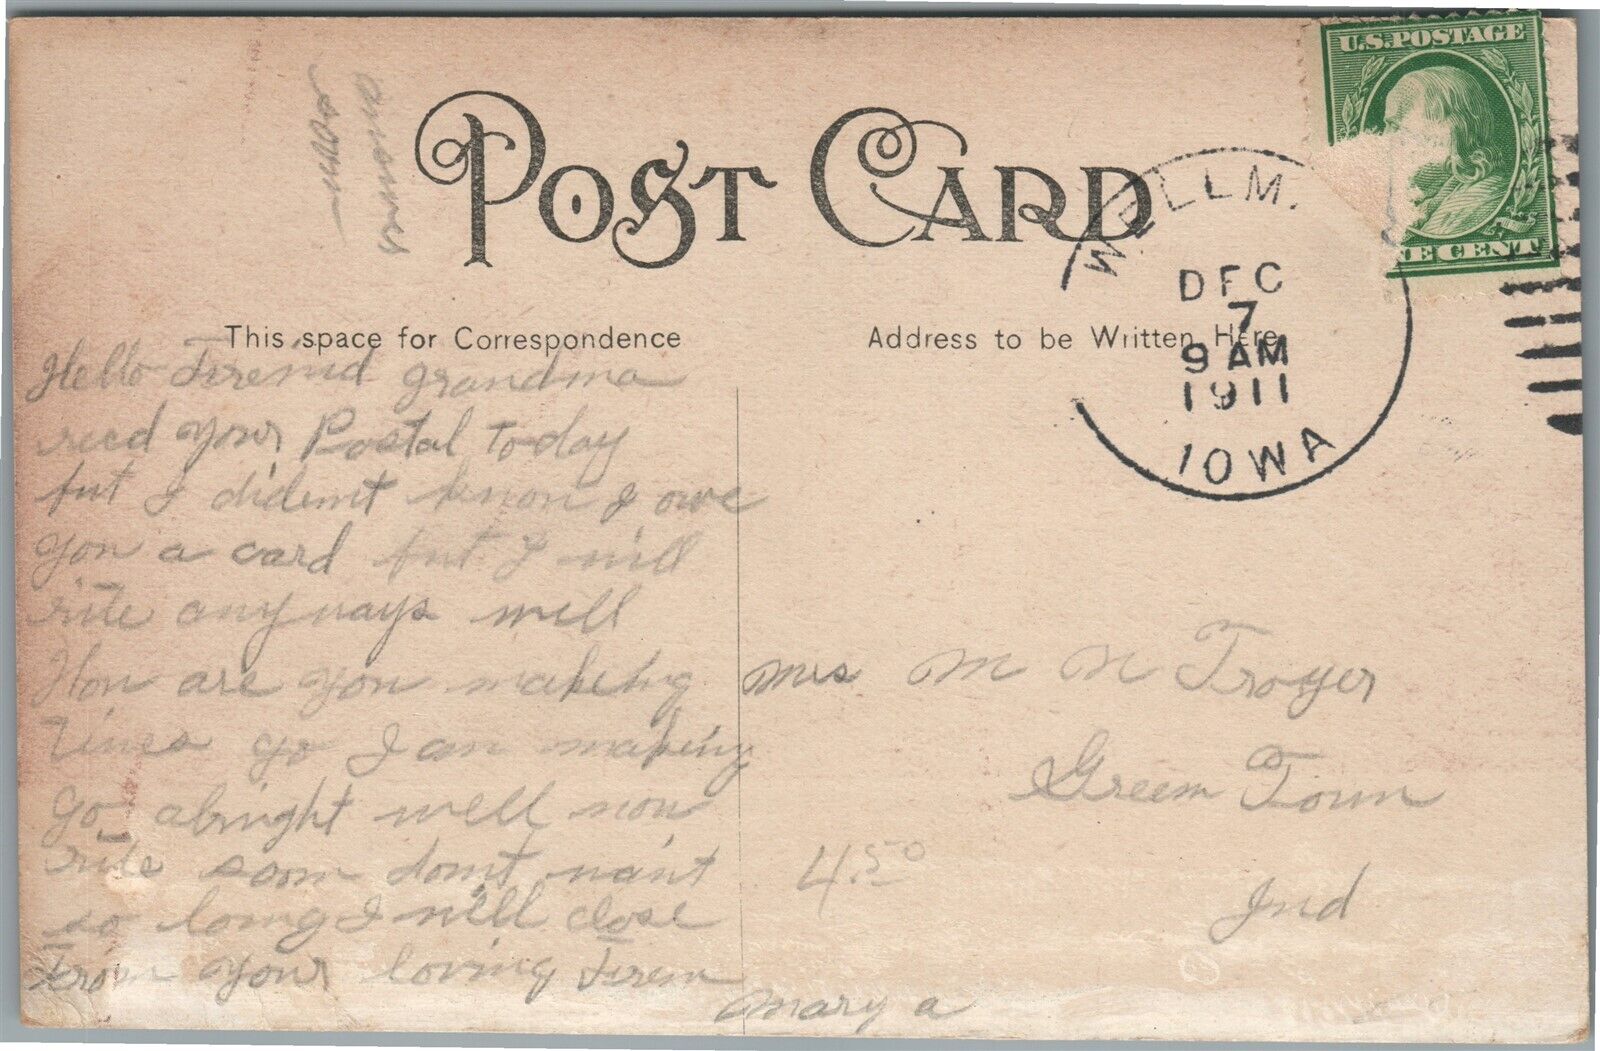 answer
soon
POST CARD
U.S. POSTAGE
NE CENT
WELLM
DEC
7
9 AM
1911
IOWA
This space for Correspondence
Address to be Written Here
Hello Firenid grandma
recd your Postal today
but I didemt know I owe
you a card but I will
rite anyways well
How are you makeing
times go I am making
go alright well now
rite soon dont wait
so long I will close
From your loving Firem
Mary a
Mrs M N Troyer
Green Town
Ind
4.50